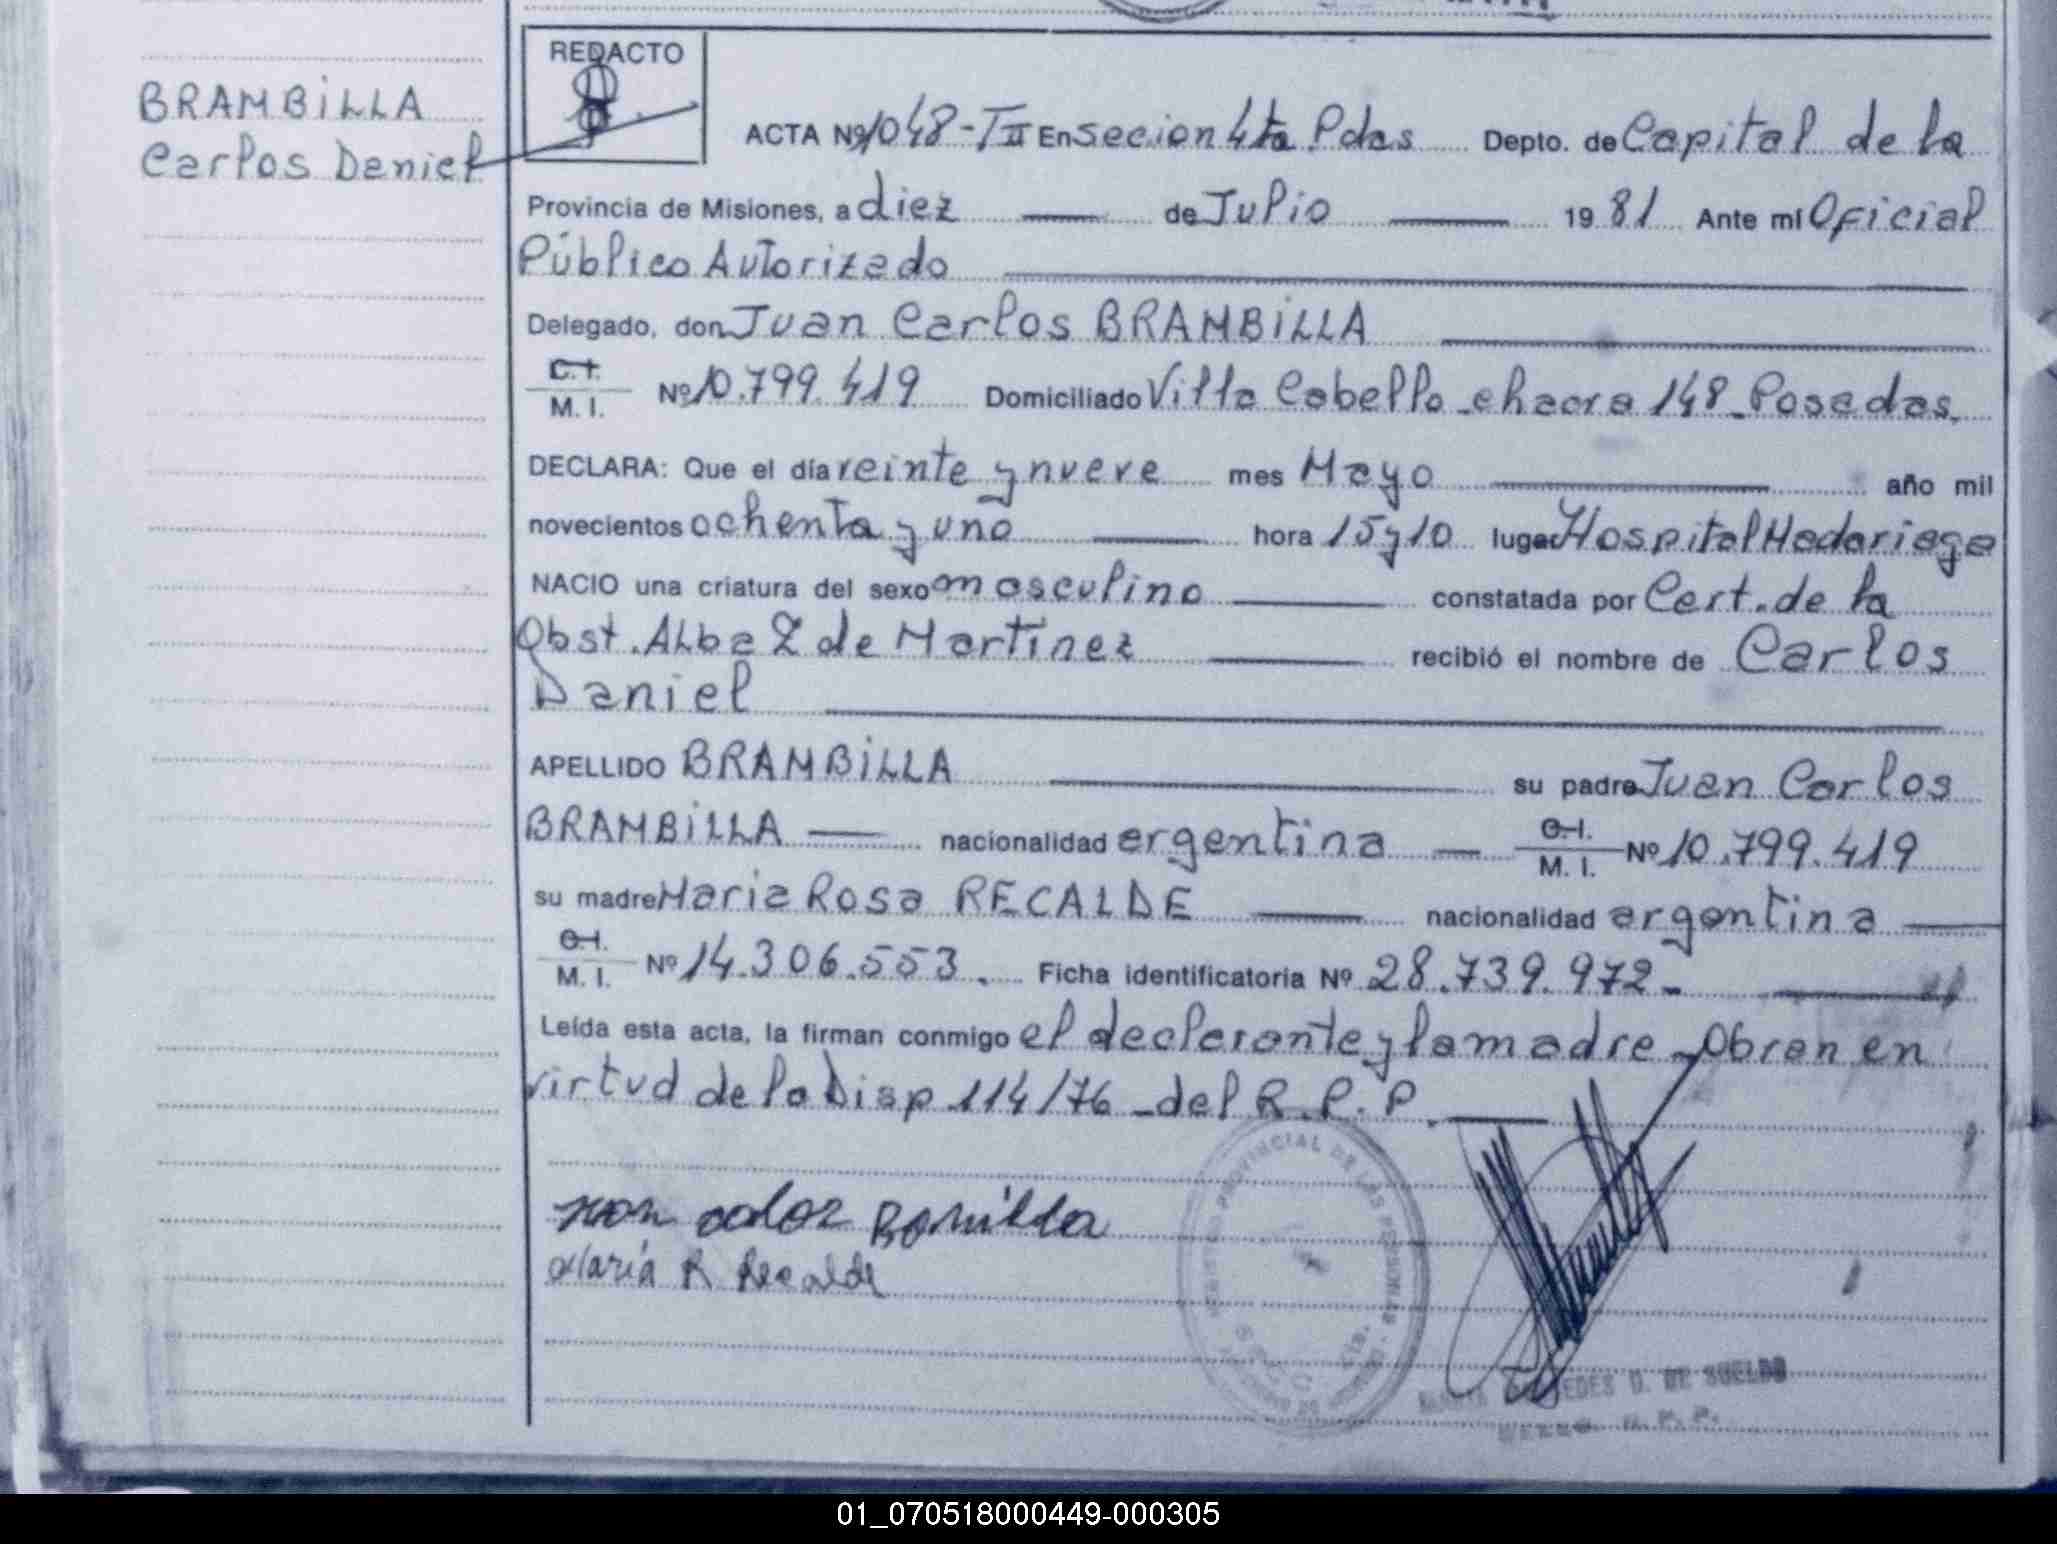 REDACTO
BRAMBILLA
Carlos Daniel
ACTA Nº 1048-TII En Seccion 4ta Pdas Depto. de Capital de la
Provincia de Misiones, a diez de Julio 1981 Ante mí Oficial
Público Autorizado
Delegado, don Juan Carlos BRAMBILLA
C.I.
M. I. Nº 10.799.419 Domiciliado Villa Cabello chacra 148 - Posadas.
DECLARA: Que el día veinte y nueve mes Mayo año mil
novecientos ochenta y uno hora 15 y 10 lugar Hospital Madariaga
NACIO una criatura del sexo masculino constatada por Cert. de la
Obst. ALba Z de Martínez recibió el nombre de Carlos
Daniel
APELLIDO BRAMBILLA su padre Juan Carlos
BRAMBILLA nacionalidad argentina C.I.
M. I. Nº 10.799.419
su madre Maria Rosa RECALDE nacionalidad argentina
C.I.
M. I. Nº 14.306.553. Ficha identificatoria Nº 28.739.972-
Leída esta acta, la firman conmigo el declarante y la madre - Obran en
virtud de la Disp 114/76 - del R.P.P.
María R Recalde
REGISTRO PROVINCIAL DE LAS PERSONAS
DE SUELDO
01_070518000449-000305